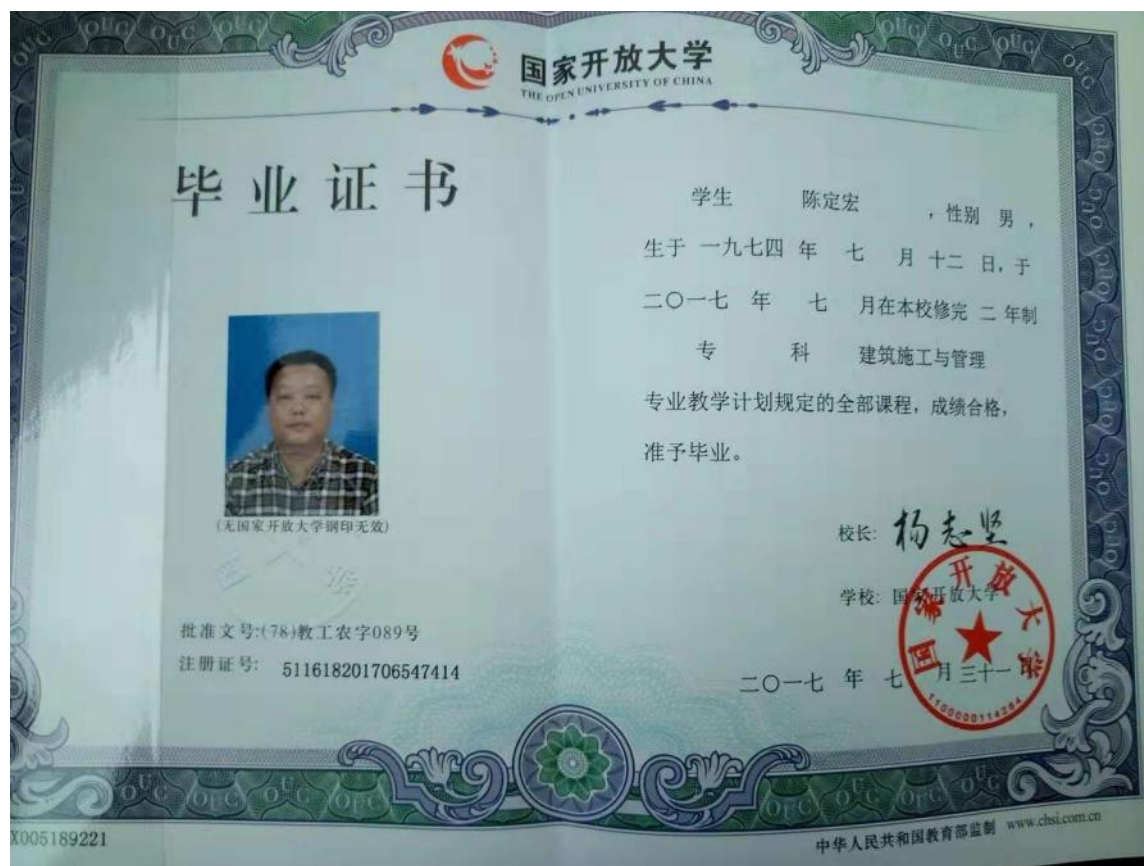 国家开放大学
THE OPEN UNIVERSITY OF CHINA
毕业证书
(无国家开放大学钢印无效)
批准文号:(78)教工农字089号
注册证号: 511618201706547414
X005189221
学生 陈定宏 ,性别 男 ,
生于 一九七四 年 七 月 十二 日,于
二〇一七 年 七 月在本校修完 二 年制
专 科 建筑施工与管理
专业教学计划规定的全部课程,成绩合格,
准予毕业。
校长: 杨志坚
学校: 国家开放大学
二〇一七 年 七 月 三十一 日
国家开放大学
1100000114284
中华人民共和国教育部监制 www.chsi.com.cn